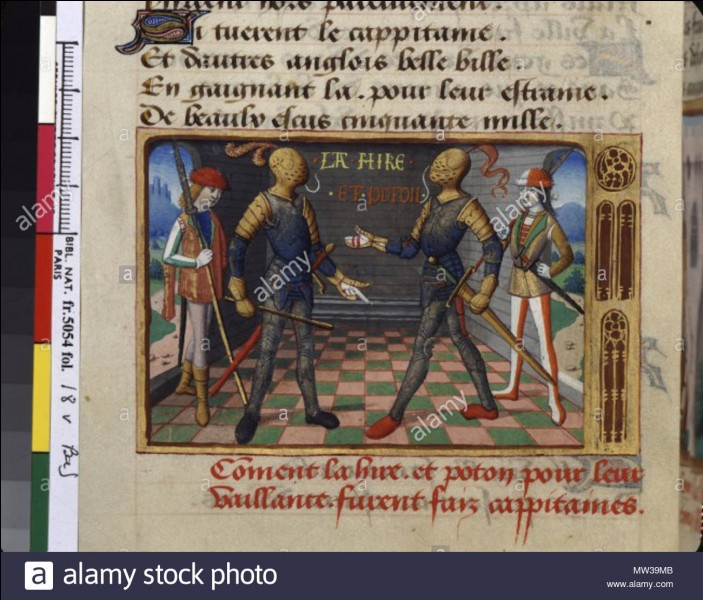 Si tuerent le cappitame.
Et dautres anglois belle bille.
En gaignant la. pour leur estraine.
De beaulx escus cinquante mille.
LA HIRE
ET POTON
Coment la hire. et poton pour leur
vaillance. furent faiz cappitaines.
BIBL. NAT. fr. 5054 fol. 18 v
PARIS
alamy
a alamy stock photo
MW39MB
www.alamy.com